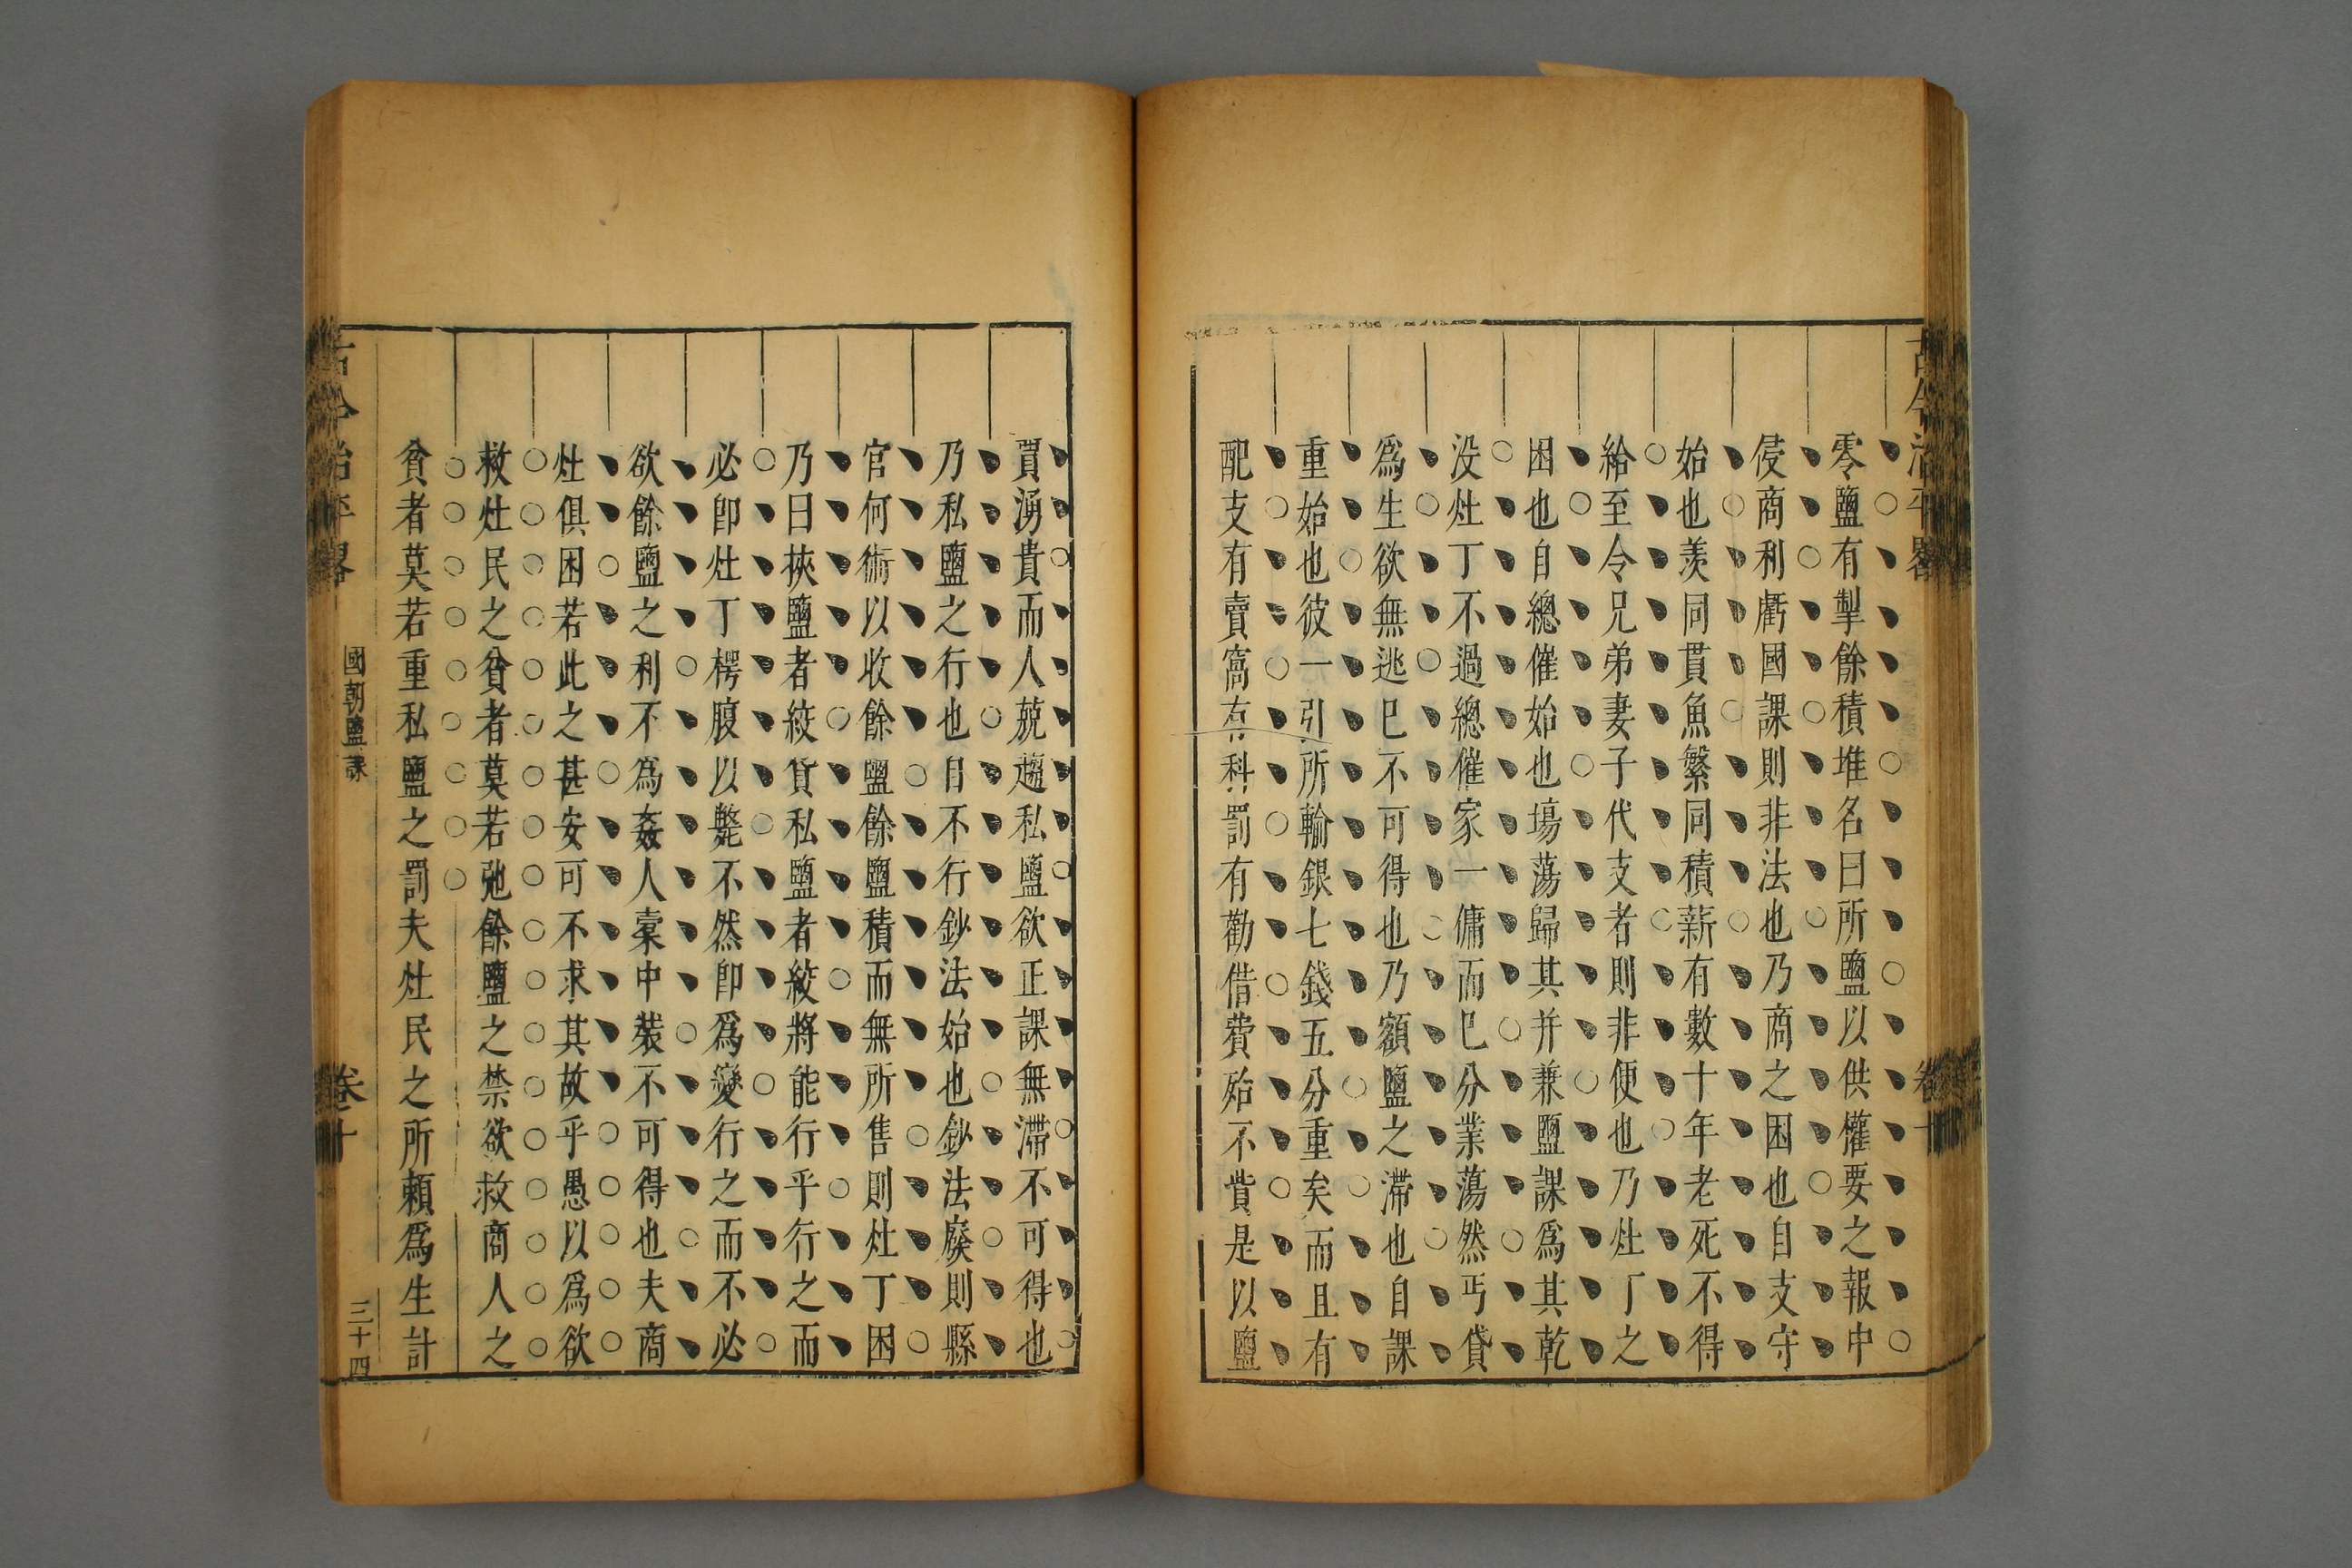 古今治平畧
卷十
零鹽有掣餘積堆名曰所鹽以供㩁要之報中
侵商利虧國課則非法也乃商之困也自支守
始也羨同貫魚繁同積薪有數十年老死不得
給至令兄弟妻子代支者則非便也乃灶丁之
困也自總催始也塲蕩歸其并兼鹽課爲其乾
没灶丁不過總催家一傭而巳分業蕩然丐貸
爲生欲無逃巳不可得也乃額鹽之滯也自課
重始也彼一引所輸銀七錢五分重矣而且有
配支有賣窩有科罰有勸借費殆不貲是以鹽
買湧貴而人兢趨私鹽欲正課無滯不可得也
乃私鹽之行也自不行鈔法始也鈔法廢則縣
官何術以收餘鹽餘鹽積而無所售則灶丁困
乃曰挾鹽者絞貨私鹽者絞將能行乎行之而
必卽灶丁楞腹以斃不然卽爲變行之而不必
欲餘鹽之利不爲姦人橐中裝不可得也夫商
灶俱困若此之甚安可不求其故乎愚以爲欲
救灶民之貧者莫若弛餘鹽之禁欲救商人之
貧者莫若重私鹽之罰夫灶民之所賴爲生計
古今治平畧
國朝鹽課
卷十
三十四